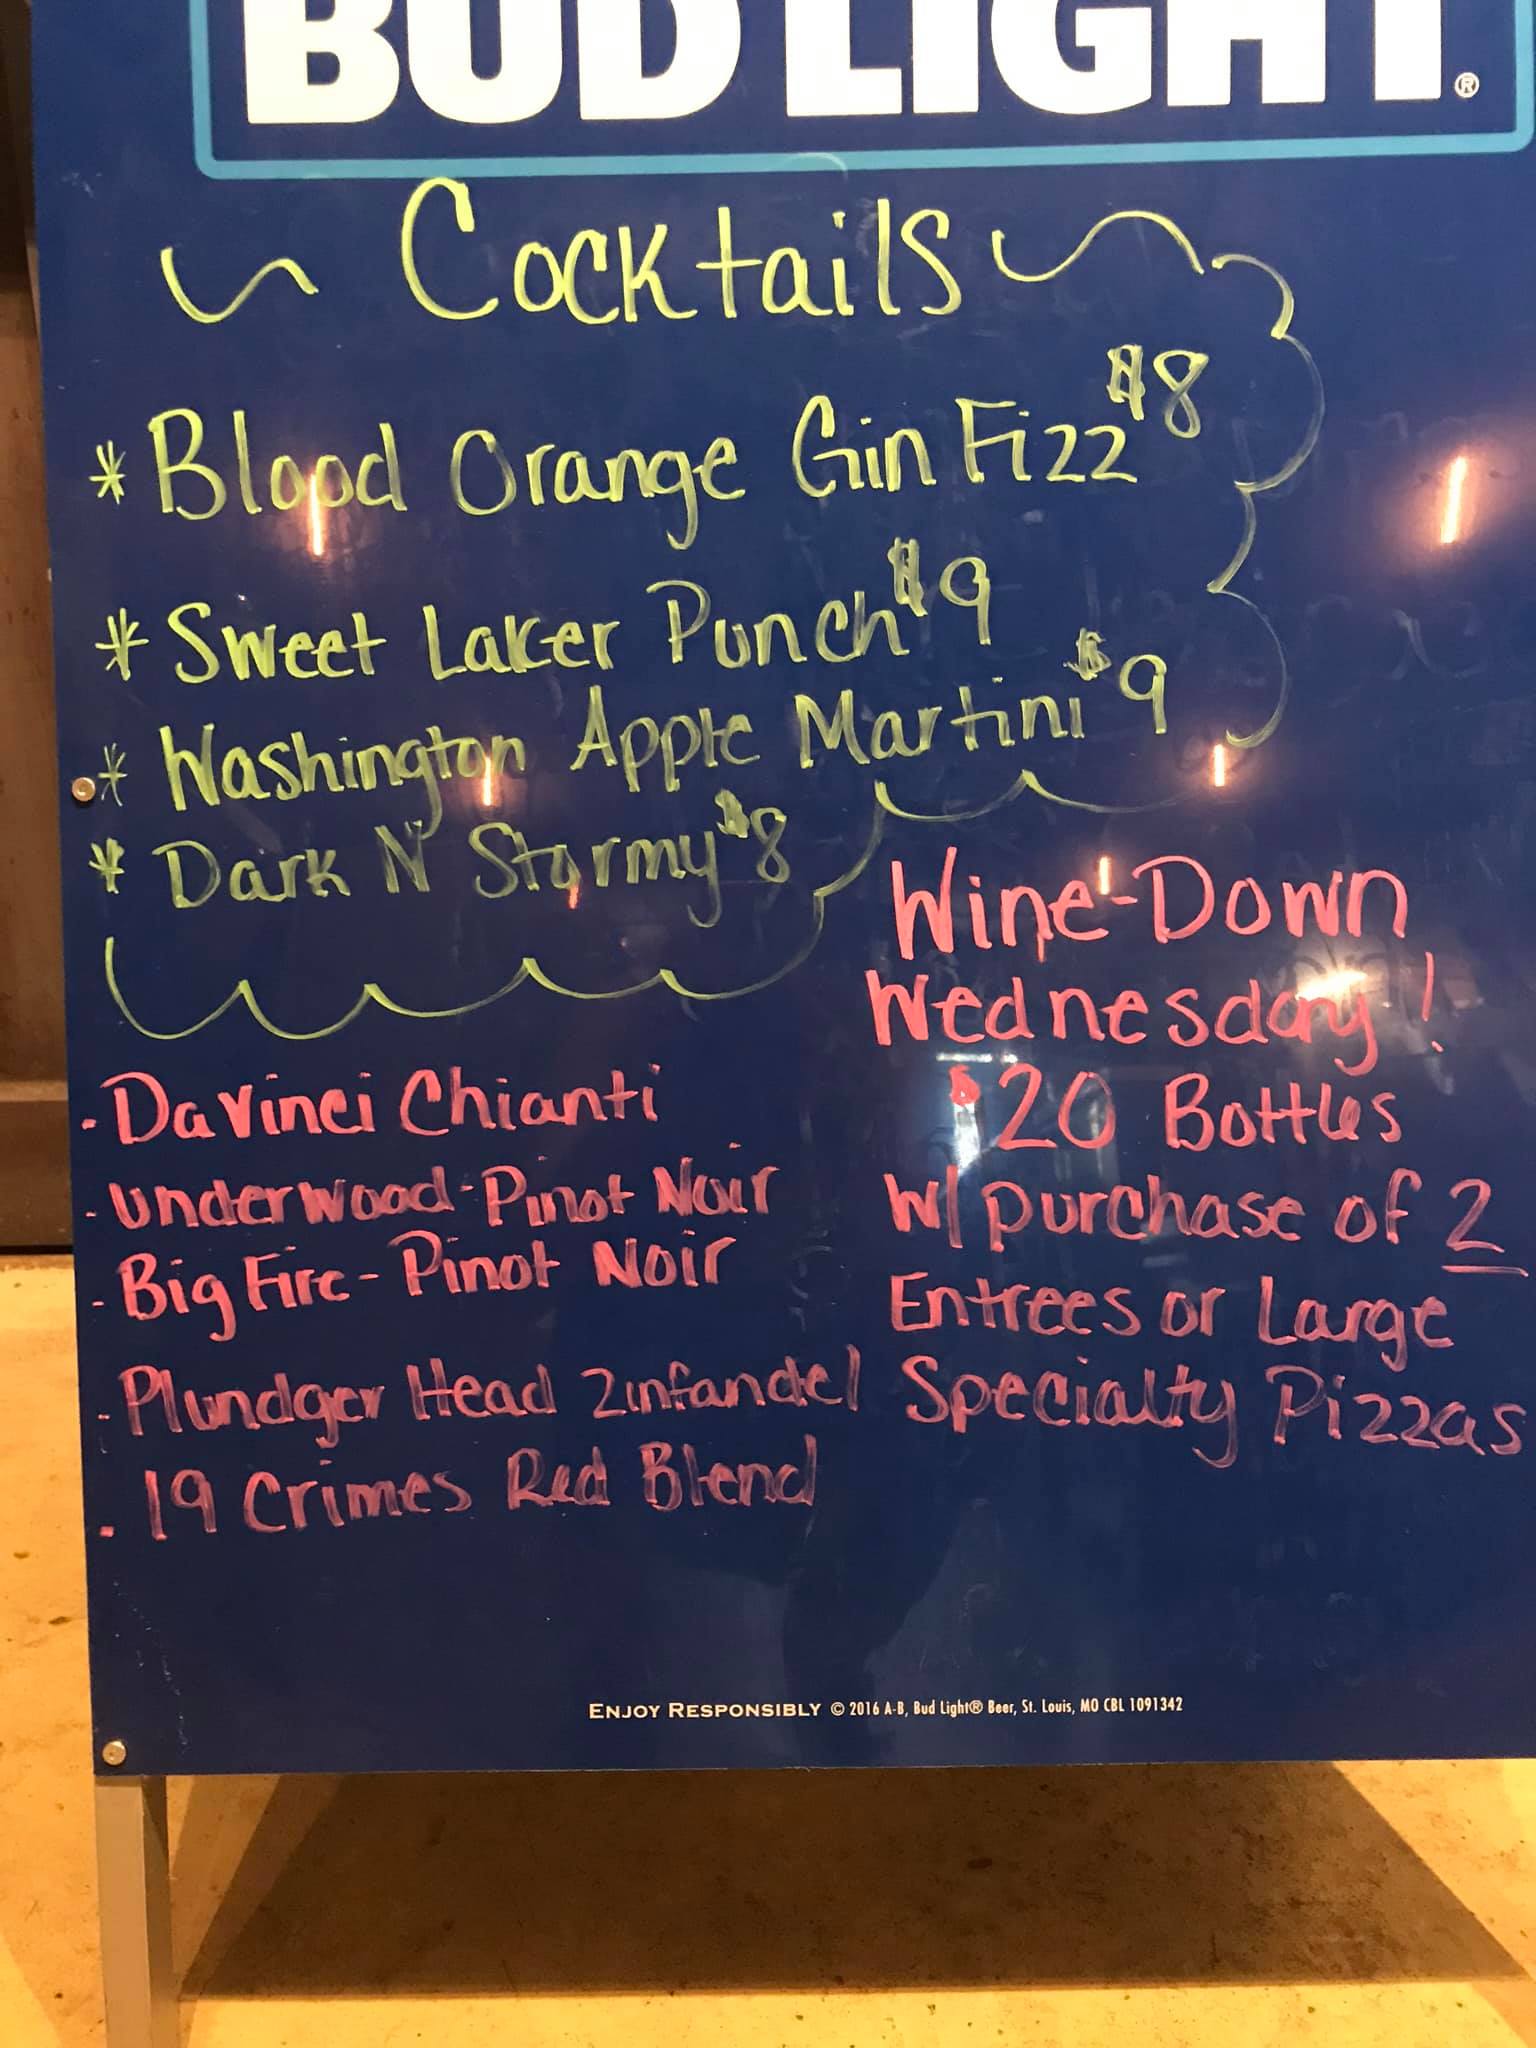 BUD LIGHT®
Cocktails
* Blood Orange Gin Fizz $8
* Sweet Laker Punch $9
* Washington Apple Martini $9
* Dark N' Stormy $8
Wine-Down
Wednesday!
$20 Bottles
w/ purchase of 2
Entrees or Large
Specialty Pizzas
- DaVinci Chianti
- Underwood - Pinot Noir
- Big Fire - Pinot Noir
- Plundger Head Zinfandel
. 19 Crimes Red Blend
ENJOY RESPONSIBLY © 2016 A-B, Bud Light® Beer, St. Louis, MO CBL 1091342